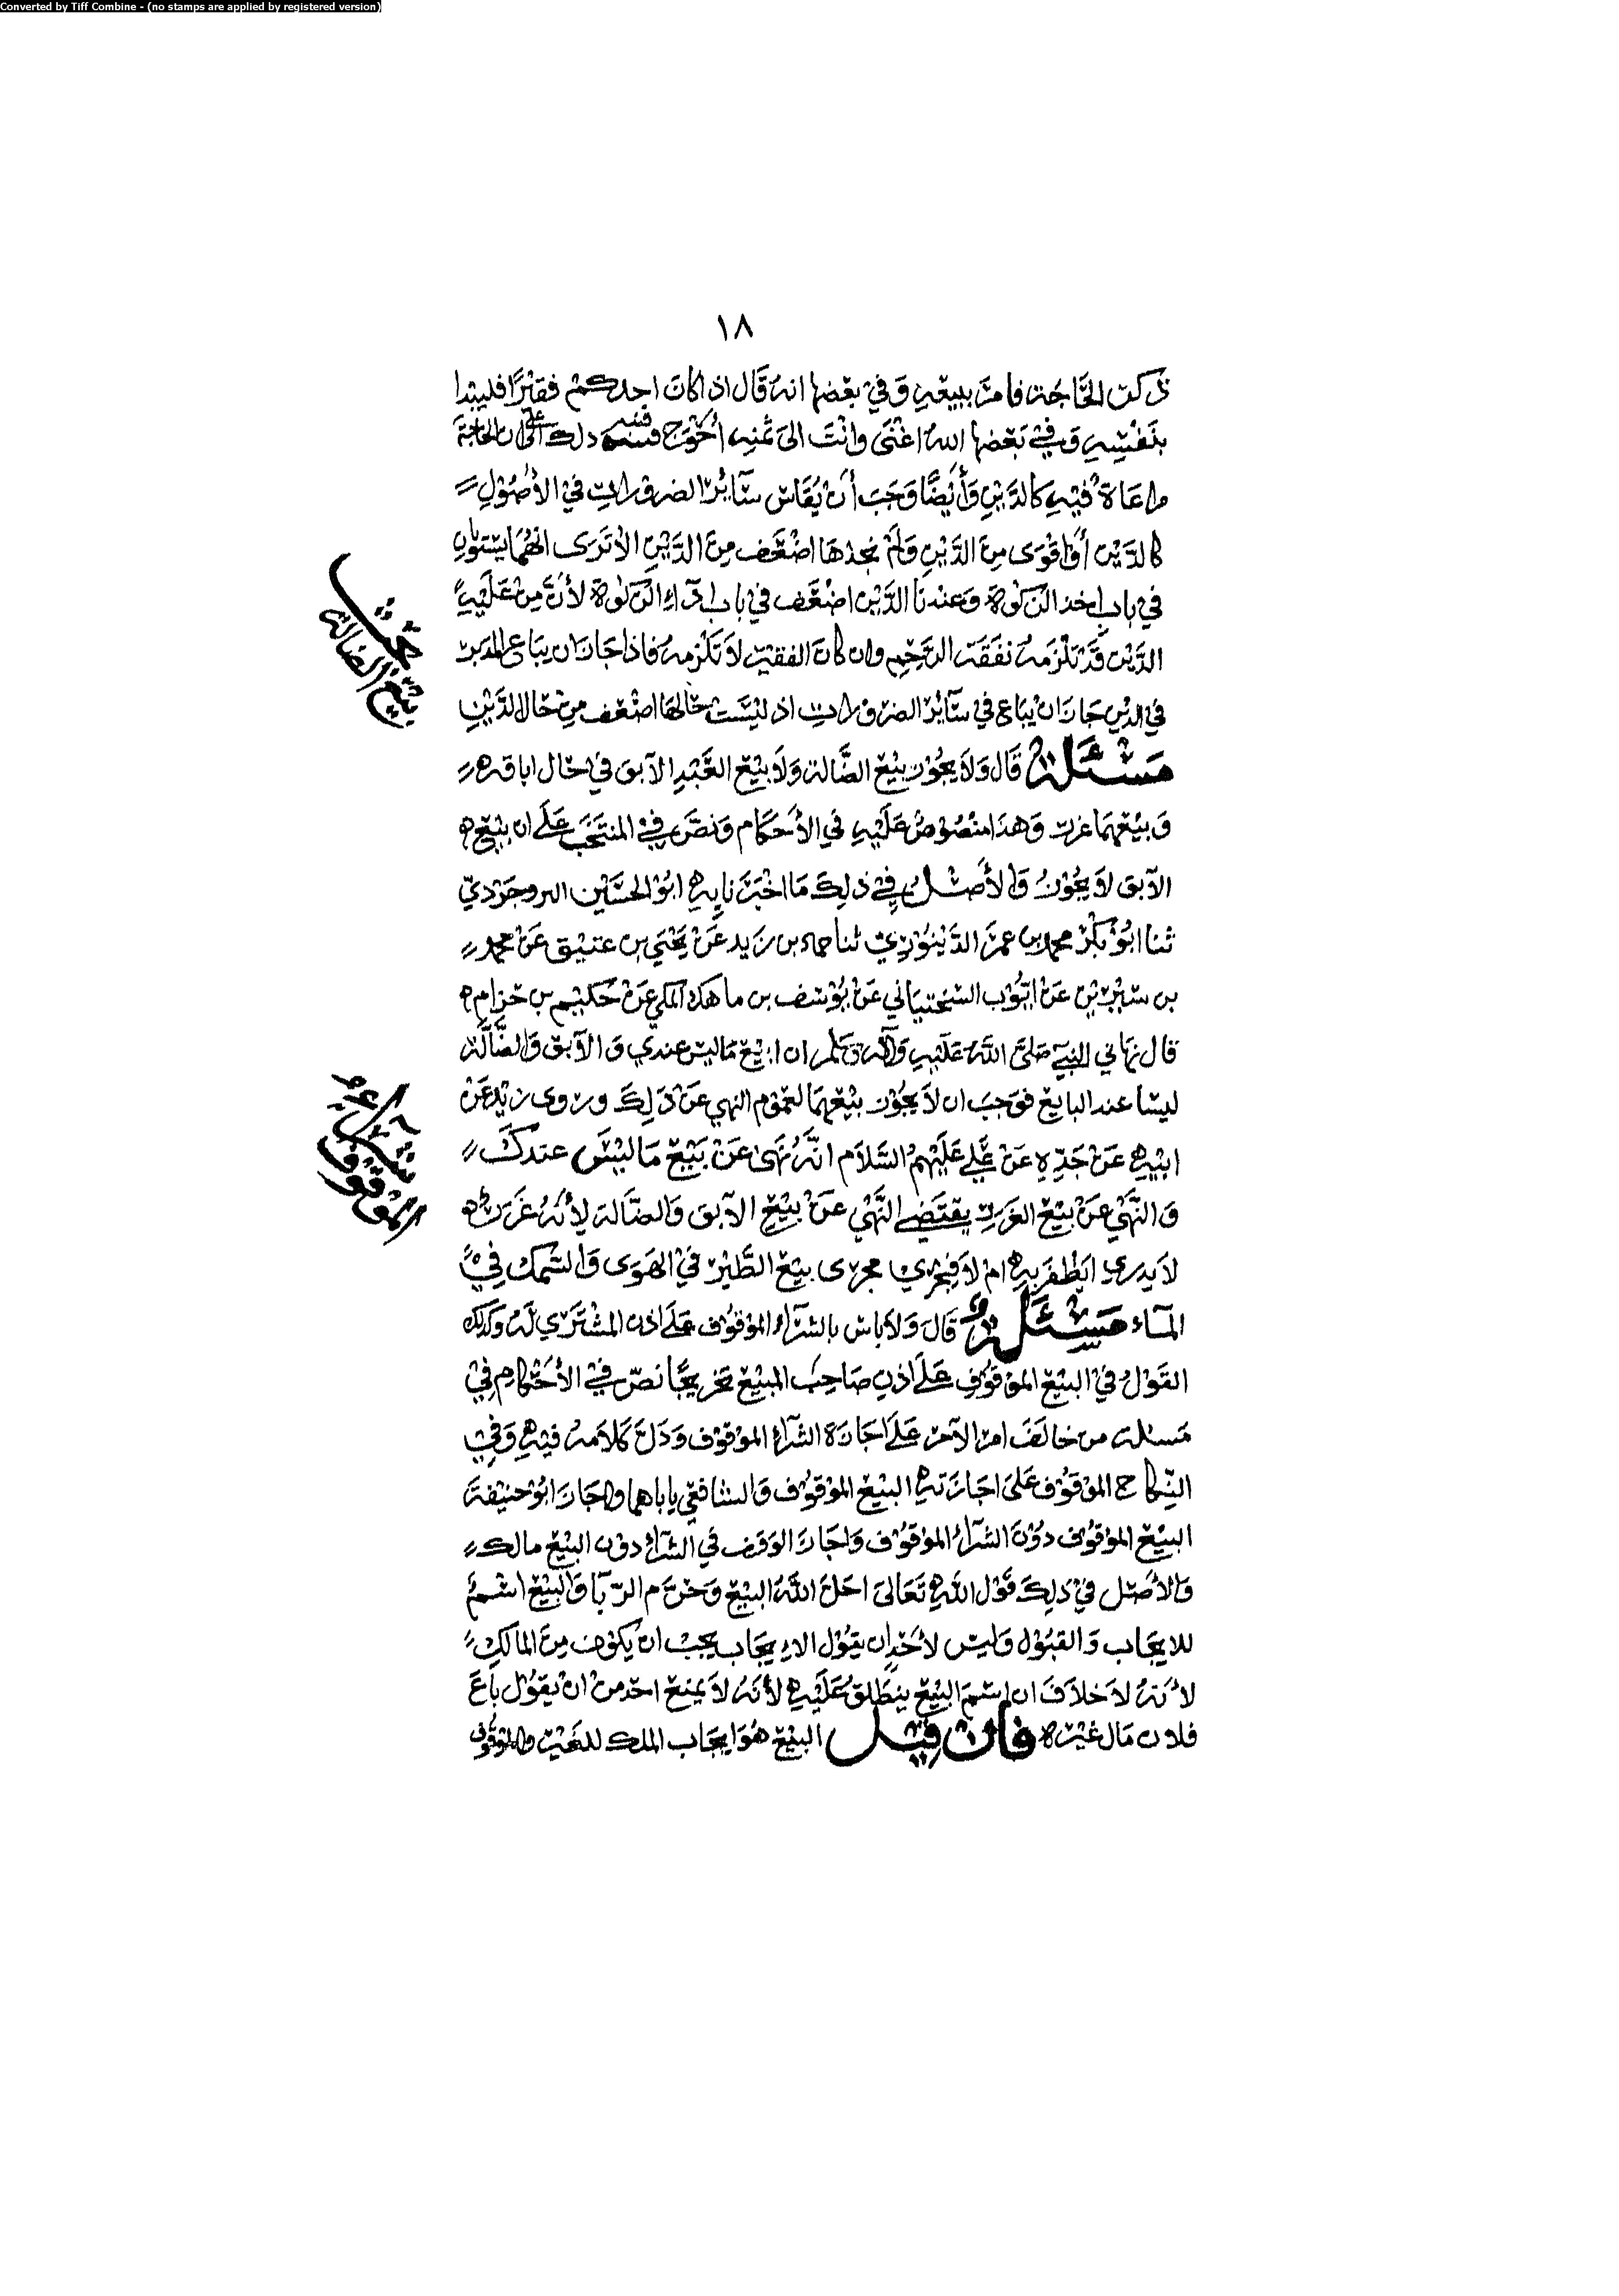 Converted by Tiff Combine - (no stamps are applied by registered version)
١٨
ذكرت الحَّاجُة فامَرَ ببيعِهِ وَفي بعَضها انهُ قَال اذا كانَ احدكمْ فقيرًا فليبدا
بنَفْسِهِ وَفي بَعضها اللهُ اغنَى وانْتَ الىَ ثمنِهِ أحْوَج فنبه دلك على ان الحاجَة
مراعَاة فيْهِ كالدَّيْنِ وَأيْضًا وَجَبَ أنْ يُقَاسَ سَآئرُ الضرورات في الأصُوْلِ
كالدَّيْن أوْ اقوَى مِنَ الدَّيْنِ وَلَمْ نجدْهَا اضْعَف مِنَ الدَّيْنِ الا تَرَى انهُمَا يسْتويان
في باب اخذ الزكوٰة وَعندنا الدَّيْن اضْعَف في باب ادآءِ الزكوٰة لأنَّ مِنْ عَلَيْهِ
الدَّيْن قَدْ تلْزمهُ نفقَة الرَّحِيِم وان كانَ الفقيْر لاَ تَلْزمهُ فاذا جَازَ ان يبَاع المدَبر
في الديْنِ جَازَ ان يبَاع في سَآئرُ الضرورات اذ ليْسَتْ حَالهَا اضْعَف مِنْ حَال الدَّيْنِ
مَسْئَلة قَال وَلاَ يجُوْز بيْع الضَّالة وَلاَ بيْع العَبْدِ الآبق في حَال اباقه
وَبيْعهمَا غرر وَهذا منصُوْصٌ عَلَيْهِ في الأحكَام وَنصَّ في المنتخَب عَلَى ان بيْع
الآبق لاَ يجُوْزُ وَالأصْل في ذلِكَ مَا اخْبَرَنا بِهِ ابُوْ الحُسَيْن البروجَرْديّ
ثنا ابُوْ بَكرْ محمد بن عمرَ الدَّيْنوُرِيْ ثنا حماد بن زَيد عَنْ يَحْيَي بن عتيْق عَنْ محمد
بن سيْرِيْن عَنْ ايُّوْب السَّخْتيَاني عَنْ يُوْسُف بن ماهك المكي عَنْ حَكيْم بن حَزام
قال نهاني النبيِّ صَلَّى اللَّهُ عَلَيْهِ وَآله وَسَلم ان ابيْع مَا ليس عندي وَالآبق وَالضَّآلة
ليسَا عند البايع فوَجَبَ ان لاَ يجُوْز بيْعهمَا لعمُوْم النهي عَنْ ذلِكَ ورَوى زيْد عَنْ
ابيْهِ عَنْ جَدِّهِ عَنْ عَلِي عَلَيْهمُ السَّلاَم انَّهُ نهَى عَنْ بَيْع مَا ليْسَ عندكَ
وَالنَّهْي عَنْ بيْع الغررِ يقتَضِي النَّهْي عَنْ بيْع الآبق وَالضَّالة لِأنهُ غَرَر
لاَ يدري ايظفر بِهِ امْ لاَ فيجْرِي مجرَى بيْع الطَّيْر في الهوَى وَالسَّمَك في
المآء مَسْئَلة قَالَ وَلاَ باسَ بالشرآء الموْقوُف عَلَى اذن المشْتَرَى لَهُ وَكذلك
القَوْلُ في البيْع الموْقوُف عَلَى اذنِ صَاحِبُ المبيْع تخرِيجًا نصّ في الأحْكامِ في
مَسئلة من خالَفَ امر الآمر عَلَى اجَازة الشرآء الموْقوُف وَدَلَّ كَلاَمهُ فيْهِ وَفي
النِّكاح الموْقوُف عَلَى اجَازَتهِ البيْع الموْقوُف وَالشافعّي ياباهما واجَازَ ابُوْ حنيْفَة
البيْع الموْقوُف دوُنَ الشرآء الموْقوُف وَاجَازَ الوقف في الشرآء دوْن البيْع مالك
وَالأصْل في ذلِكَ قَوْل اللَّهِ تَعَالىَ احَلَّ اللَّهُ البيْع وَحَرَّم الرّبَا وَالبيْع اسْمٌ
للايجَاب وَالقبُوْل وَليسَ لأحَدٍ ان يقوُل الايجَاب يجبْ انْ يَكوْن مِنَ المالكِ
لأنهُ لاَ خلاَفَ ان اسْمَ البيْع ينطَلِقُ عَلَيْهِ لأنهُ لاَ يمنع احَدٌ منْ انْ يقوُل بَاعَ
فلان مَال غيْره فان قيْل البيْع هُوَ ايجَاب الملك للغَيْر والموْقوُف
بحث
بيْع الضالة
الموْقوُف